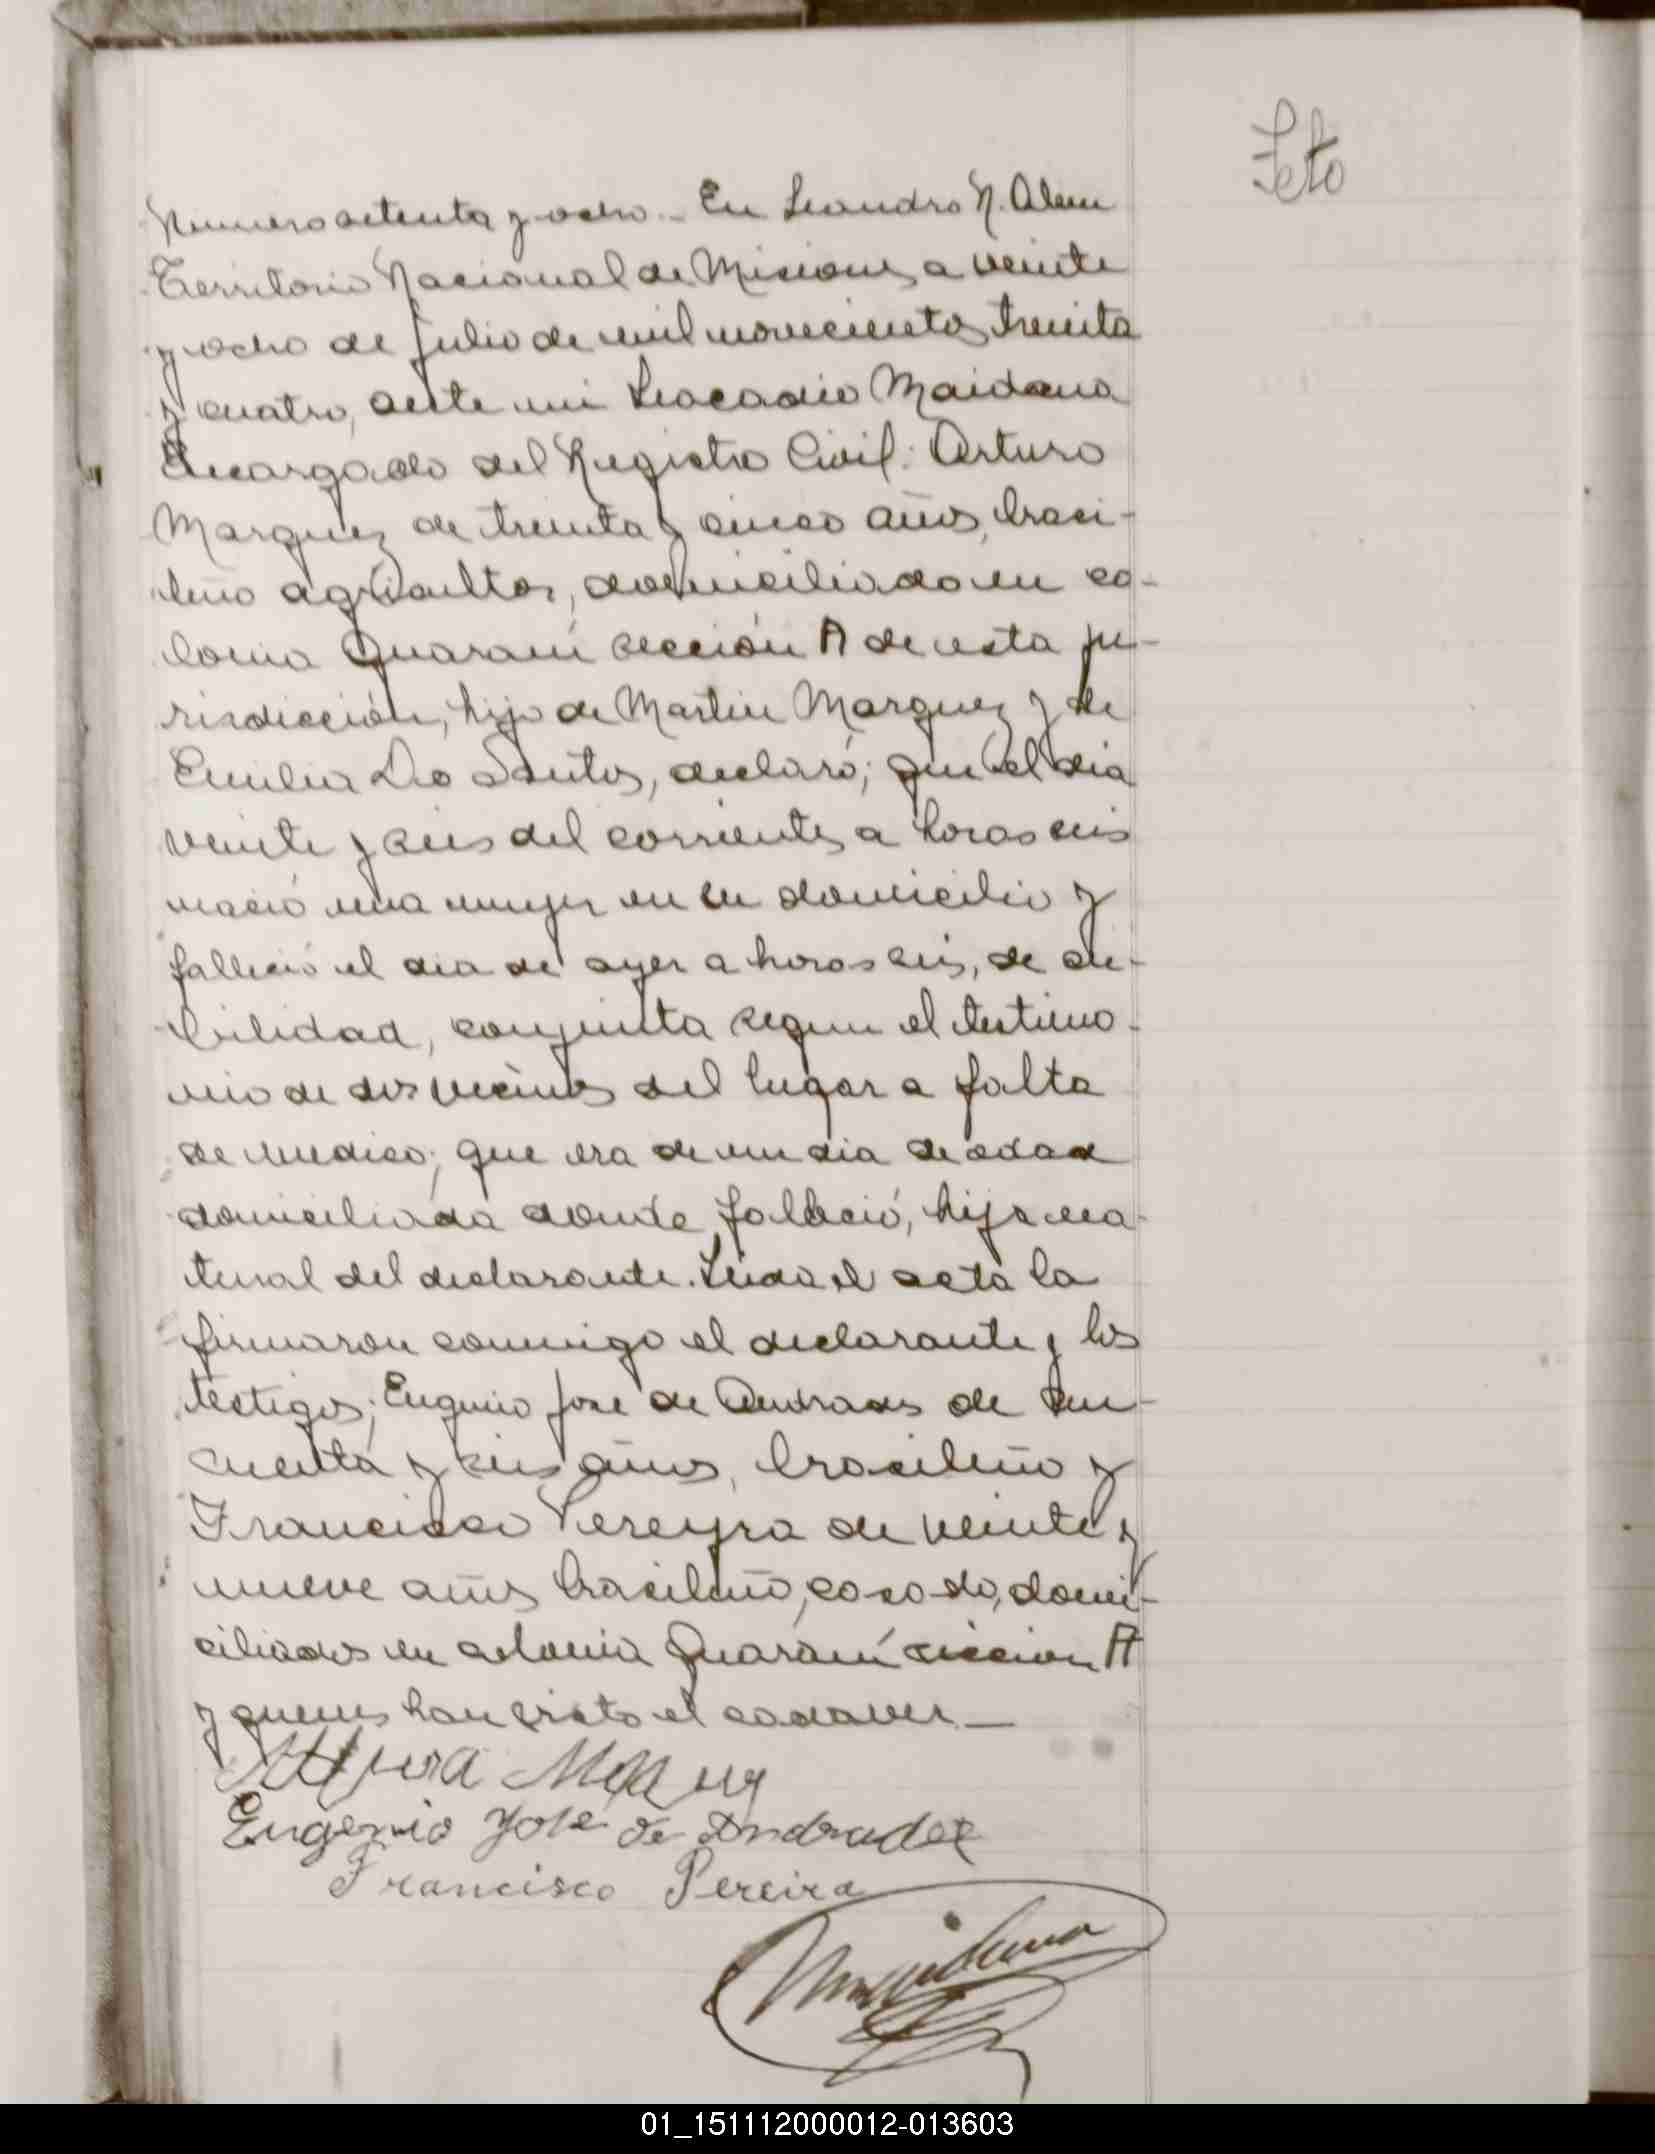 Feto
Numero setenta y ocho. - En Leandro N. Alem
Territorio Nacional de Misiones a veinte
y ocho de Julio de mil novecientos treinta
y cuatro, ante mi Leocadio Maidana
Encargado del Registro Civil: Arturo
Marquez de treinta y cinco años, brasi-
leño agricultor, domiciliado en co-
lonia Guaraní sección A de esta ju-
risdicción, hijo de Martin Marquez y de
Emilia Do Santos, declaró; que el dia
veinte y seis del corrientes a horas seis
nació una mujer en su domicilio y
falleció el dia de ayer a horas seis, de de-
bilidad, conjinta segun el testimo-
nio de dos vecinos del lugar a falta
de medico; que era de un dia de edad
domiciliada donde falleció, hija na-
tural del declarante. Leida el acta la
firmaron conmigo el declarante y los
testigos; Eugenio Jose de Andrades de cin-
cuenta y seis años, brasileño y
Francisco Pereyra de veinte y
nueve años brasileño, casado, domi-
ciliados en colonia Guaraní seccion A
y quienes han visto el cadaver. —
Eugenio Jose de Andrade
Francisco Pereira
Maidana
01_151112000012-013603